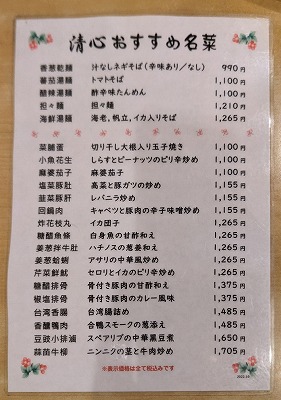 清心おすすめ名菜
香葱乾麺 汁なしネギそば(辛味あり／なし) 990円
蕃茄湯麺 トマトそば 1,100円
醋辣湯麺 酢辛味たんめん 1,100円
担々麺 担々麺 1,210円
海鮮湯麺 海老、帆立、イカ入りそば 1,265円
菜脯蛋 切り干し大根入り玉子焼き 1,100円
小魚花生 しらすとピーナッツのピリ辛炒め 1,100円
麻婆茄子 麻婆茄子 1,100円
塩菜豚肚 高菜と豚ガツの炒め 1,155円
韮菜豚肝 レバニラ炒め 1,155円
回鍋肉 キャベツと豚肉の辛子味噌炒め 1,155円
炸花枝丸 イカ団子 1,265円
糖醋魚條 白身魚の甘酢和え 1,265円
姜葱拌牛肚 ハチノスの葱姜和え 1,265円
姜葱蛤蜊 アサリの中華風炒め 1,265円
芹菜鮮魷 セロリとイカのピリ辛炒め 1,265円
糖醋排骨 骨付き豚肉の甘酢和え 1,375円
椒塩排骨 骨付き豚肉のカレー風味 1,375円
台湾香腸 台湾腸詰め 1,485円
香醺鴨肉 合鴨スモークの葱添え 1,485円
豆豉小排滷 スペアリブの中華黒豆煮 1,650円
蒜苗牛柳 ニンニクの茎と牛肉炒め 1,705円
※表示価格は全て税込みです